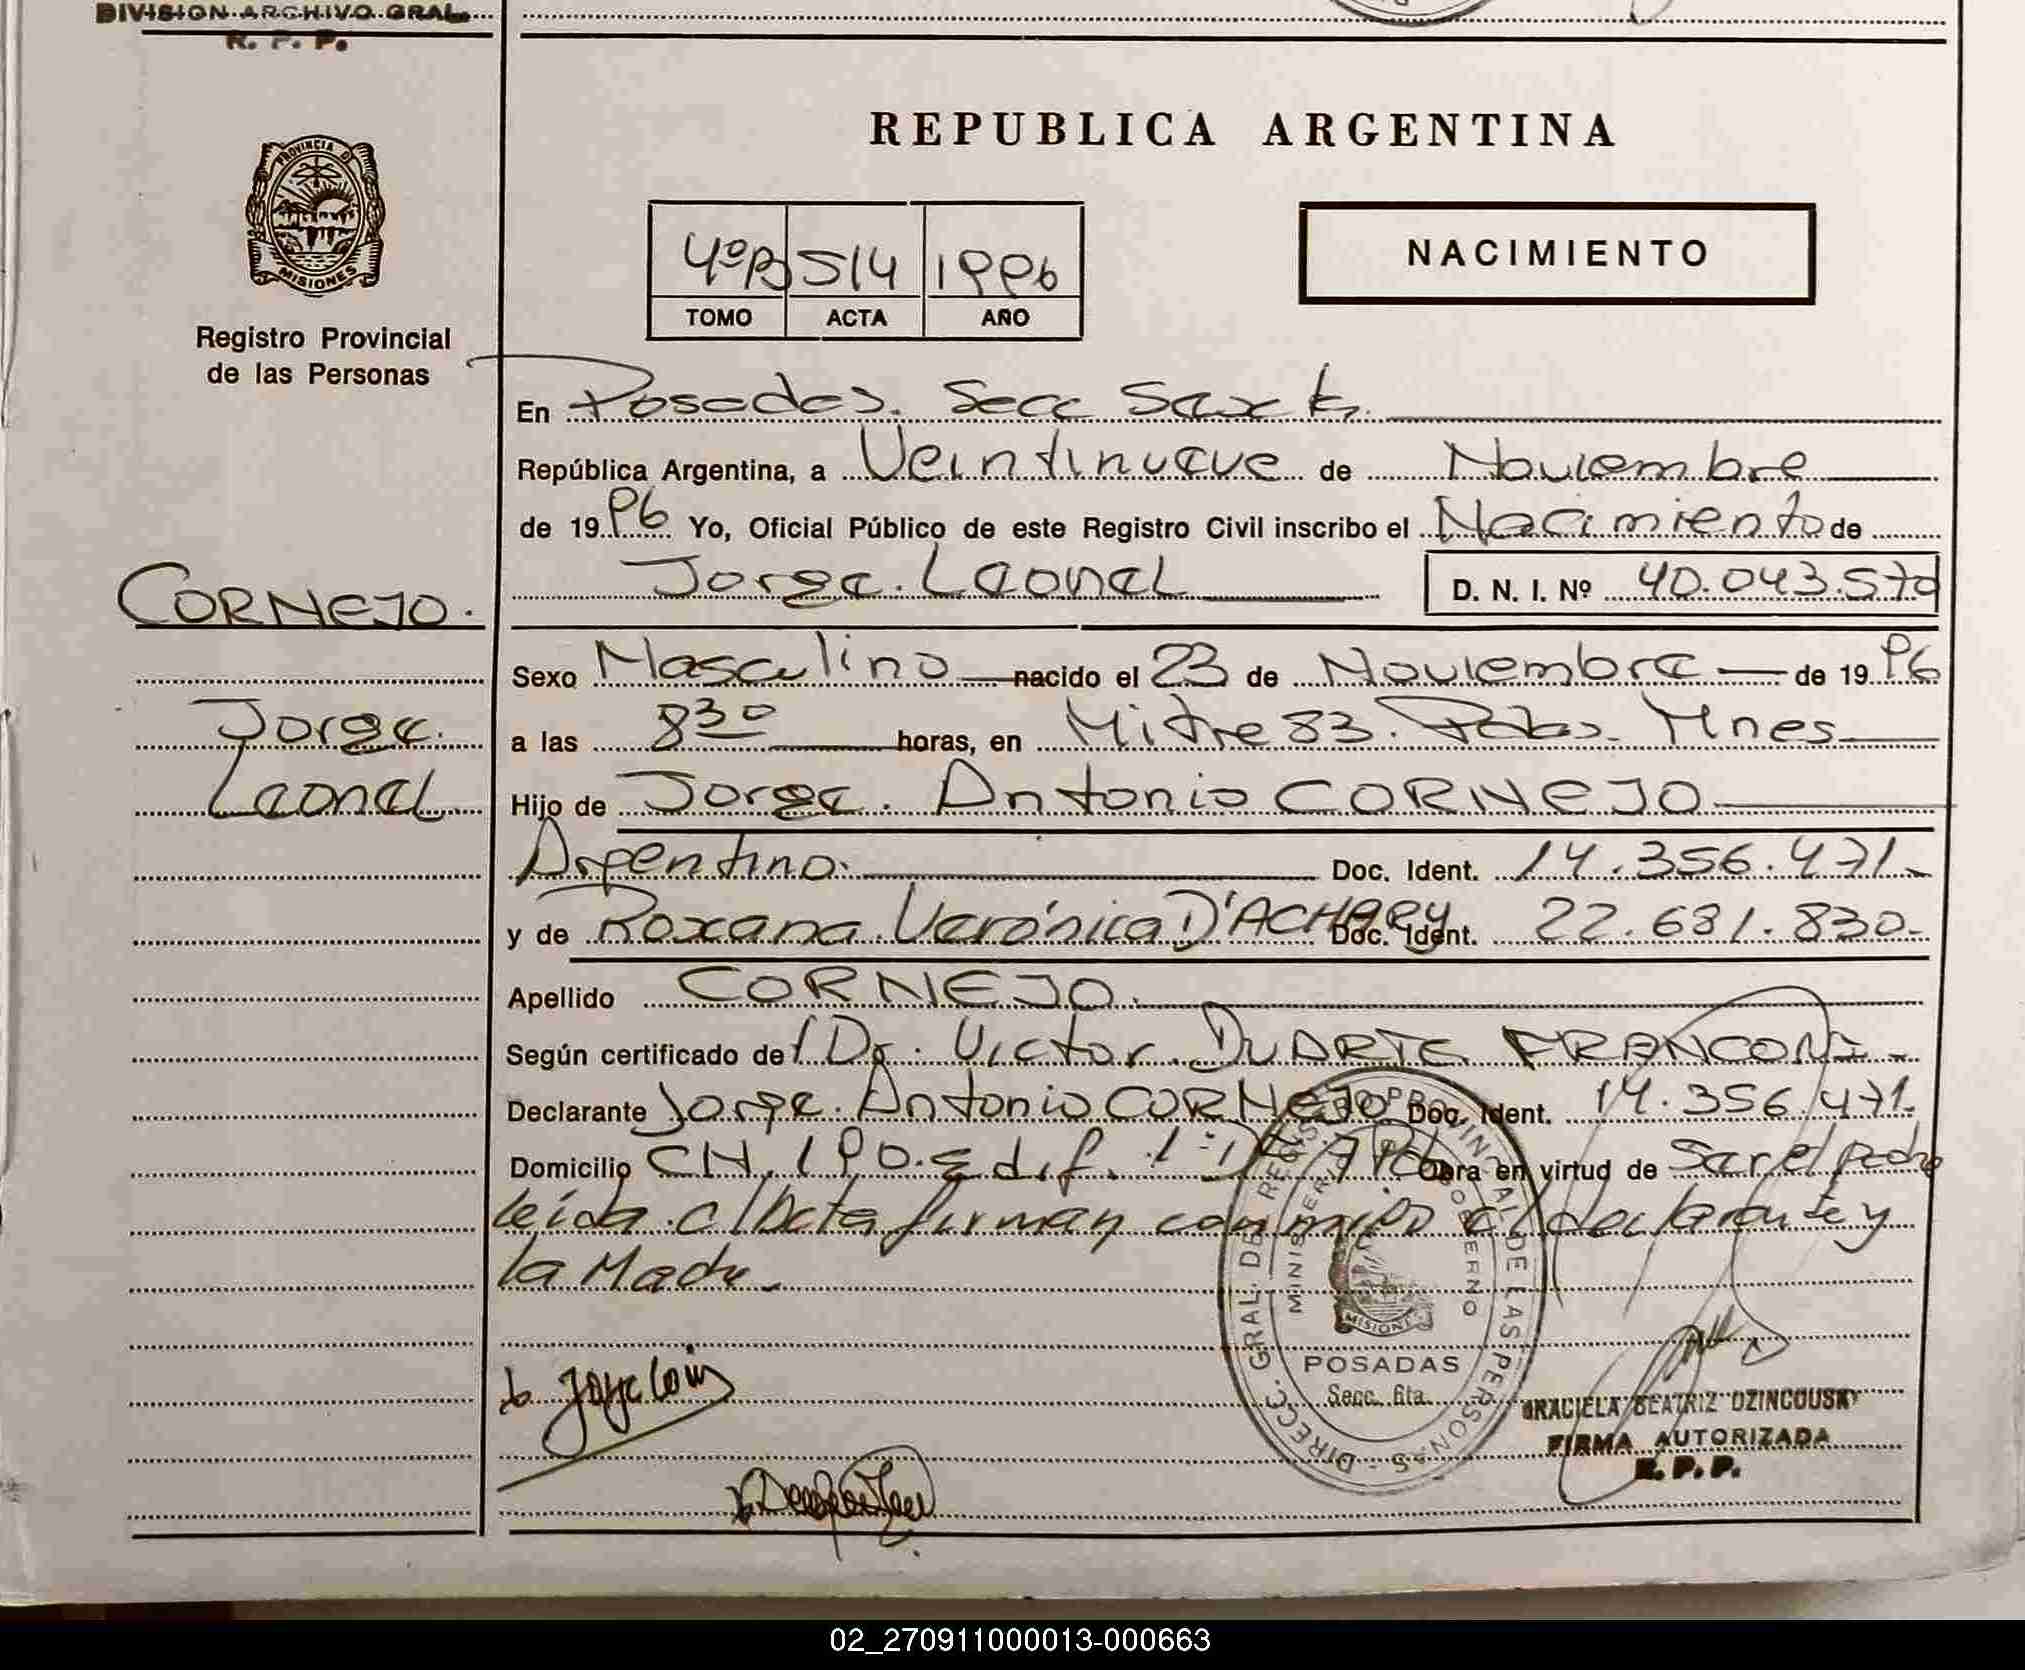 DIVISION ARCHIVO GRAL.
R. P. P.
PROVINCIA DE
MISIONES
Registro Provincial
de las Personas
REPUBLICA ARGENTINA
4ºB 514 1996
TOMO ACTA AÑO
NACIMIENTO
En Posadas. Secc Sexta.
República Argentina, a Veintinueve de Noviembre
de 1996 Yo, Oficial Público de este Registro Civil inscribo el Nacimiento de
Jorge Leonel D. N. I. Nº 40.043.570
CORNEJO.
Jorge
Leonel
Sexo Masculino nacido el 23 de Noviembre de 1996
a las 8 30 horas, en Mitre 83. Pdas. Mnes
Hijo de Jorge Antonio CORNEJO
Argentino. Doc. Ident. 14.356.471.
y de Roxana Verónica D'ACHARY Doc. Ident. 22.681.830.
Apellido CORNEJO.
Según certificado del Dr. Victor DUARTE FRANCONI
Declarante Jorge Antonio CORNEJO Doc. Ident. 14.356.471.
Domicilio CH. 190. Edif. 1: Obra en virtud de Ser el padre
leída el Acta firman conmigo el declarante y
la Madre.
DIRECC. GRAL. DEL REGISTRO PROVINCIAL DE LAS PERSONAS
MINISTERIO GOBIERNO
MISIONES
POSADAS
Secc. 6ta.
GRACIELA BEATRIZ DZINCOUSKY
FIRMA AUTORIZADA
R. P. P.
02_270911000013-000663